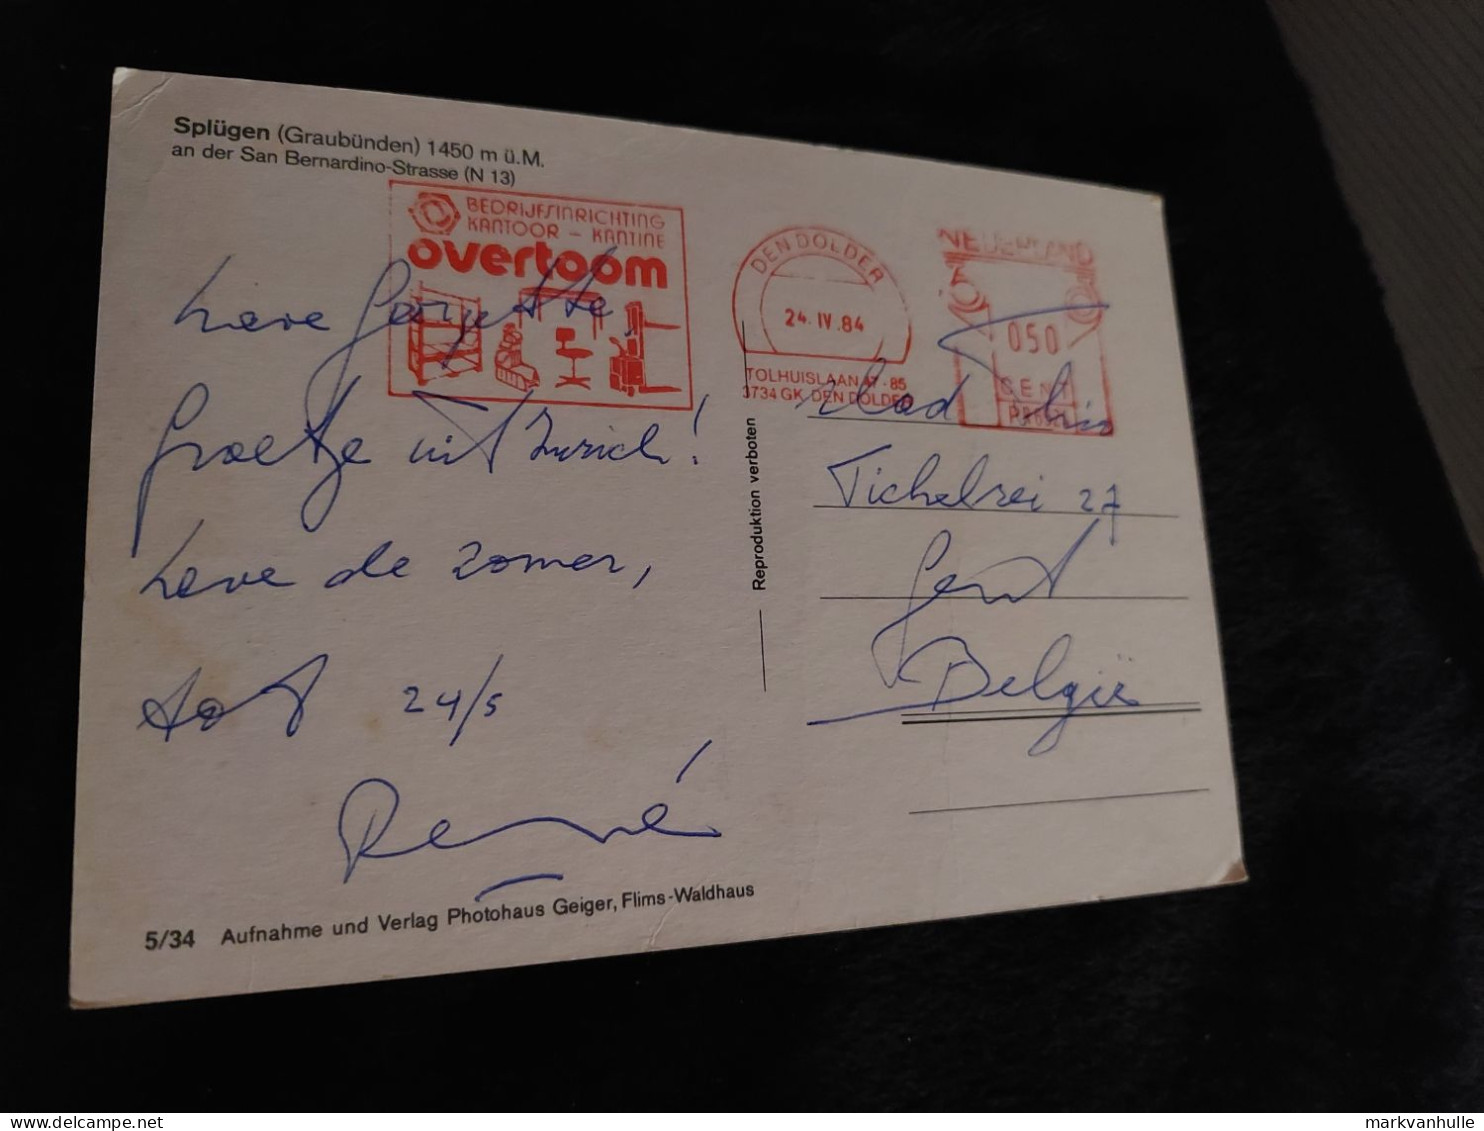 Splügen (Graubünden) 1450 m ü.M.
an der San Bernardino-Strasse (N 13)
BEDRIJFSINRICHTING
KANTOOR - KANTINE
overtoom
DEN DOLDER
24. IV .84
TOLHUISLAAN 47-85
3734 GK DEN DOLDER
NEDERLAND
050
CENT
Lieve Georgette,
Groetje uit Zurich!
Leve de zomer,
tot 24/5
René
Mad
Tichelrei 27
Gent
België
Reproduktion verboten
5/34 Aufnahme und Verlag Photohaus Geiger, Flims-Waldhaus
delcampe.net
markvanhulle